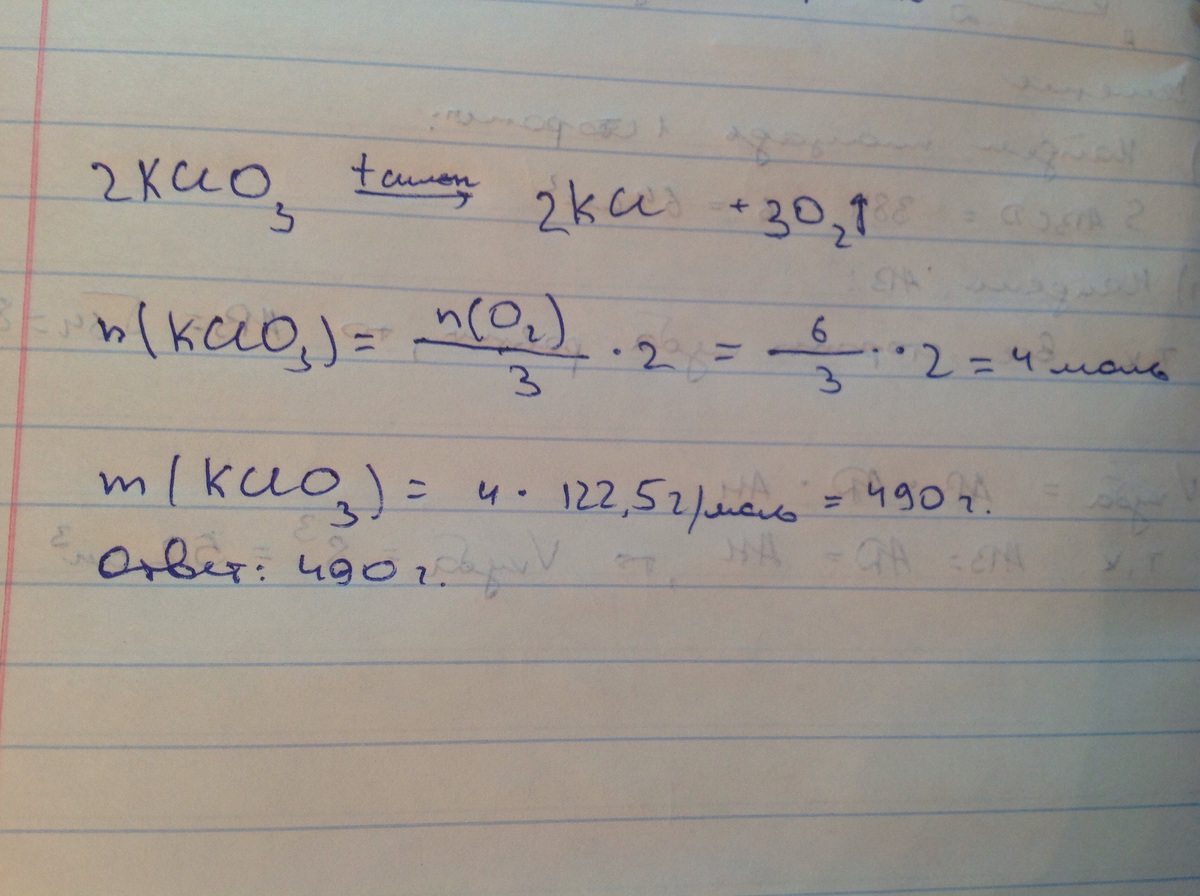 2KClO₃ →  2KCl + 3O₂↑
n(KClO₃) = n(O₂)/3 · 2 = 6/3 · · 2 = 4 моль
m(KClO₃) = 4 · 122,5 г/моль = 490 г.
Ответ: 490 г.